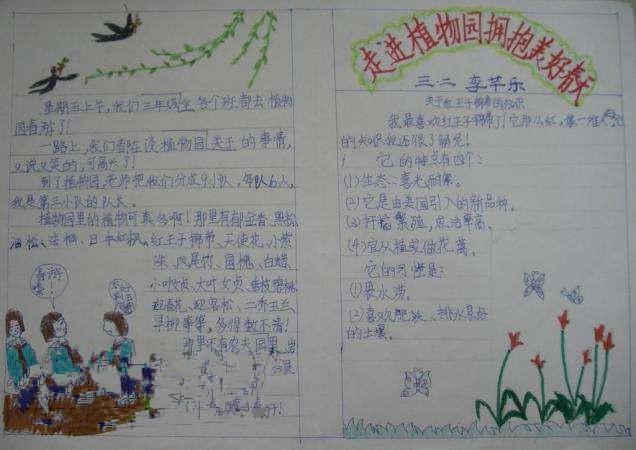 星期五上午，我们三年级全各个班都去植物
园春游了！
一路上，我们都在谈植物园类于的事情，
又说又笑的，可高兴了！
到了植物园，老师把我们分成9小队，每队6人，
我是第三小队的队长。
植物园里的植物可真多啊！那里有郁金香、黑松、
油松、法桐、日本红枫、红王子锦带、天使花、小紫
珠、凤尾竹、国槐、白蜡、
小叶女贞、大叶女贞、垂枝碧桃、
迎春花、迎客松、二乔玉兰、
寻柳等等，多得数不清！
那里还有农夫果园、岩
春游
走进植物园拥抱美好春天
三·二 李芊乐
关于红王子锦带的知识
我最喜欢红王子锦带了！它那么红，像一堆火
的知识我还很了解呢！
它的特点有四个：
(1)生态：喜光、耐寒。
(2)它是由美国引入的新品种。
(3)扦插繁殖，成活率高。
(4)宜丛植或做花篱。
它的习惯是：
(1)畏水涝。
(2)喜欢肥沃、排水良好
的土壤。